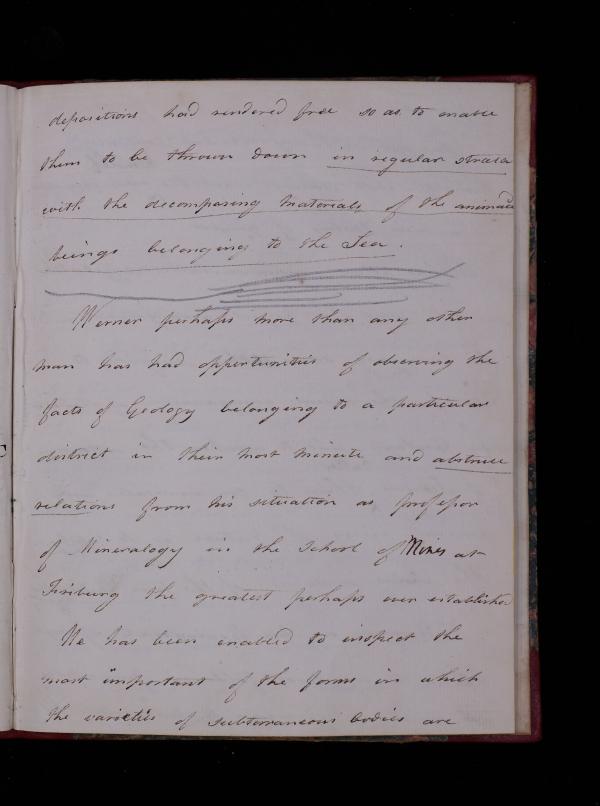 depositions had rendered free so as to enable
them to be thrown down in regular strata
with the decomposing materials of the animated
beings belonging to the Sea.
Werner perhaps more than any other
man has had opportunities of observing the
facts of Geology belonging to a particular
district in their most minute and abstruse
relations from his situation as professor
of Mineralogy in the School of Mines at
Friburg the greatest perhaps ever established
He has been enabled to inspect the
most important of the forms in which
the varieties of subterraneous bodies are